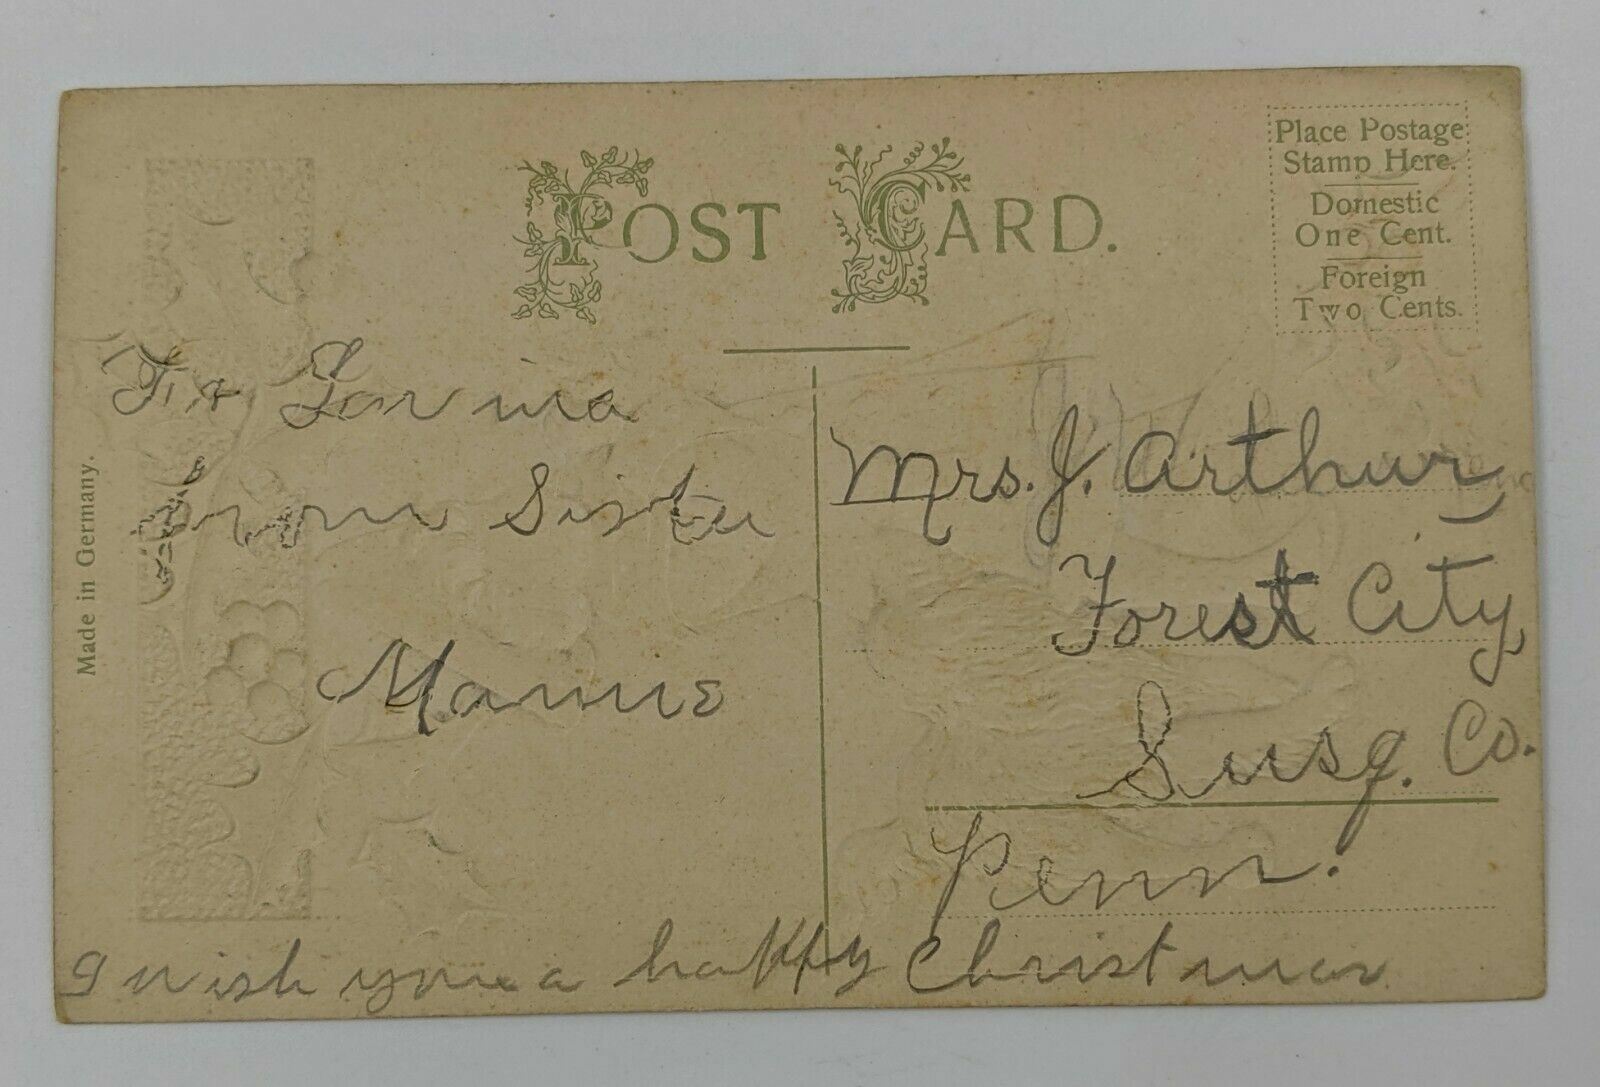 POST CARD.
Place Postage
Stamp Here.
Domestic
One Cent.
Foreign
Two Cents.
Made in Germany.
To Lovina
from Sister
Mamie
Mrs. J. Arthur,
Forest City,
Susq. Co.
Penn.
I wish you a happy Christmas